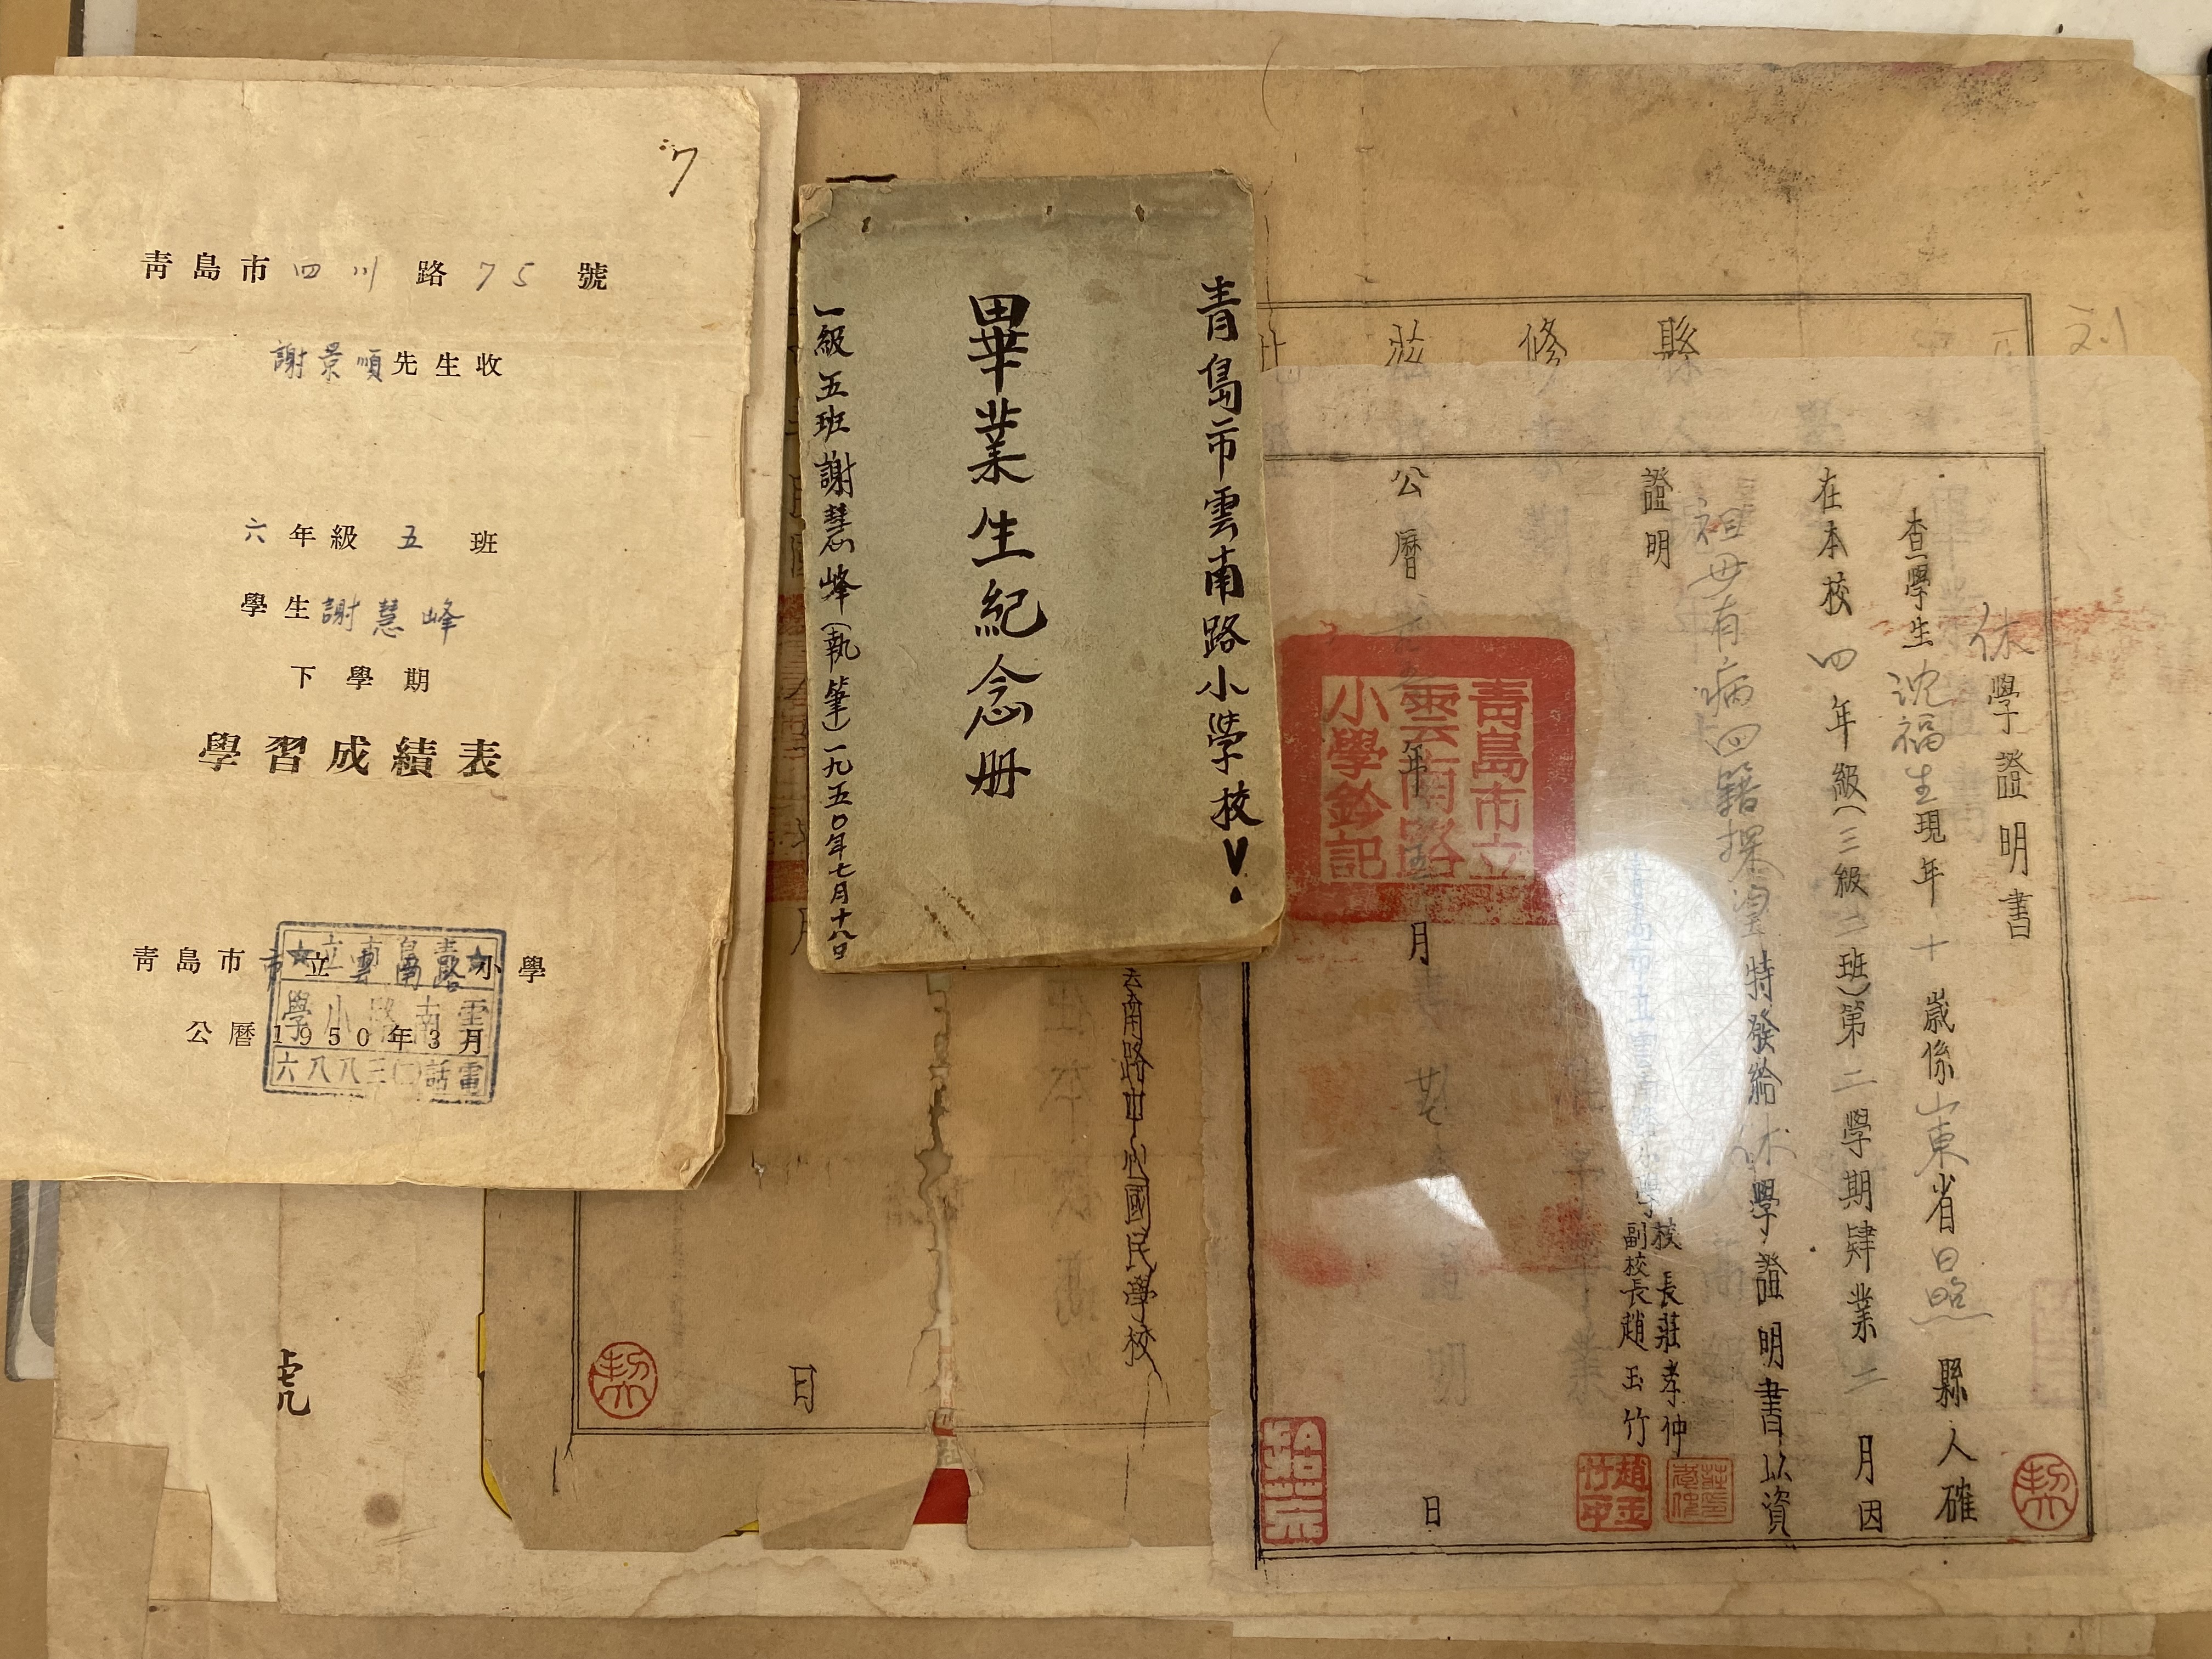 7
青島市四川路75號
謝景順先生收
六年級五班
學生謝慧峰
下學期
學習成績表
青島市市立雲南路小學
公曆1950年3月
★立市島青★
學小路南雲
六八八三〇話電
青島市雲南路小學校
畢業生紀念册
一級五班謝慧峰(執筆)一九五〇年七月十八日
縣修莊
休學證明書
查學生沈福生現年十歲係山東省日照縣人確
在本校四年級(三級二班)第二學期肄業二月因
祖母有病回籍探望特發給休學證明書以資
證明
青島市立雲南路小學校長莊孝仲
副校長趙玉竹
公曆年月日
青島市立
雲南路
小學鈐記
趙玉
竹印
雲南路中心國民學校
月
日
號